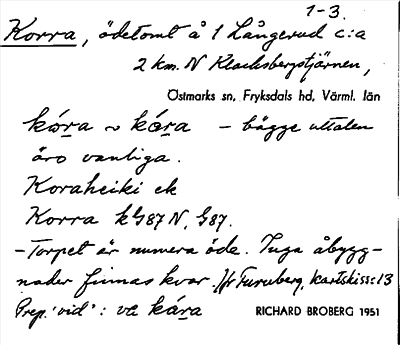 1-3.
Korra, ödetomt å 1 Långerud c:a
2 km. N Klacksbergstjärnen,
Östmarks sn, Fryksdals hd, Värml. län
kóra ~ kára – bägge uttalen
äro vanliga.
Koraheiki ek
Korra kG87N, G87.
– Torpet är numera öde. Inga åbygg-
nader finnas kvar. Jfr Furuberg, kartskiss: 13
Prep. 'vid': va kára RICHARD BROBERG 1951